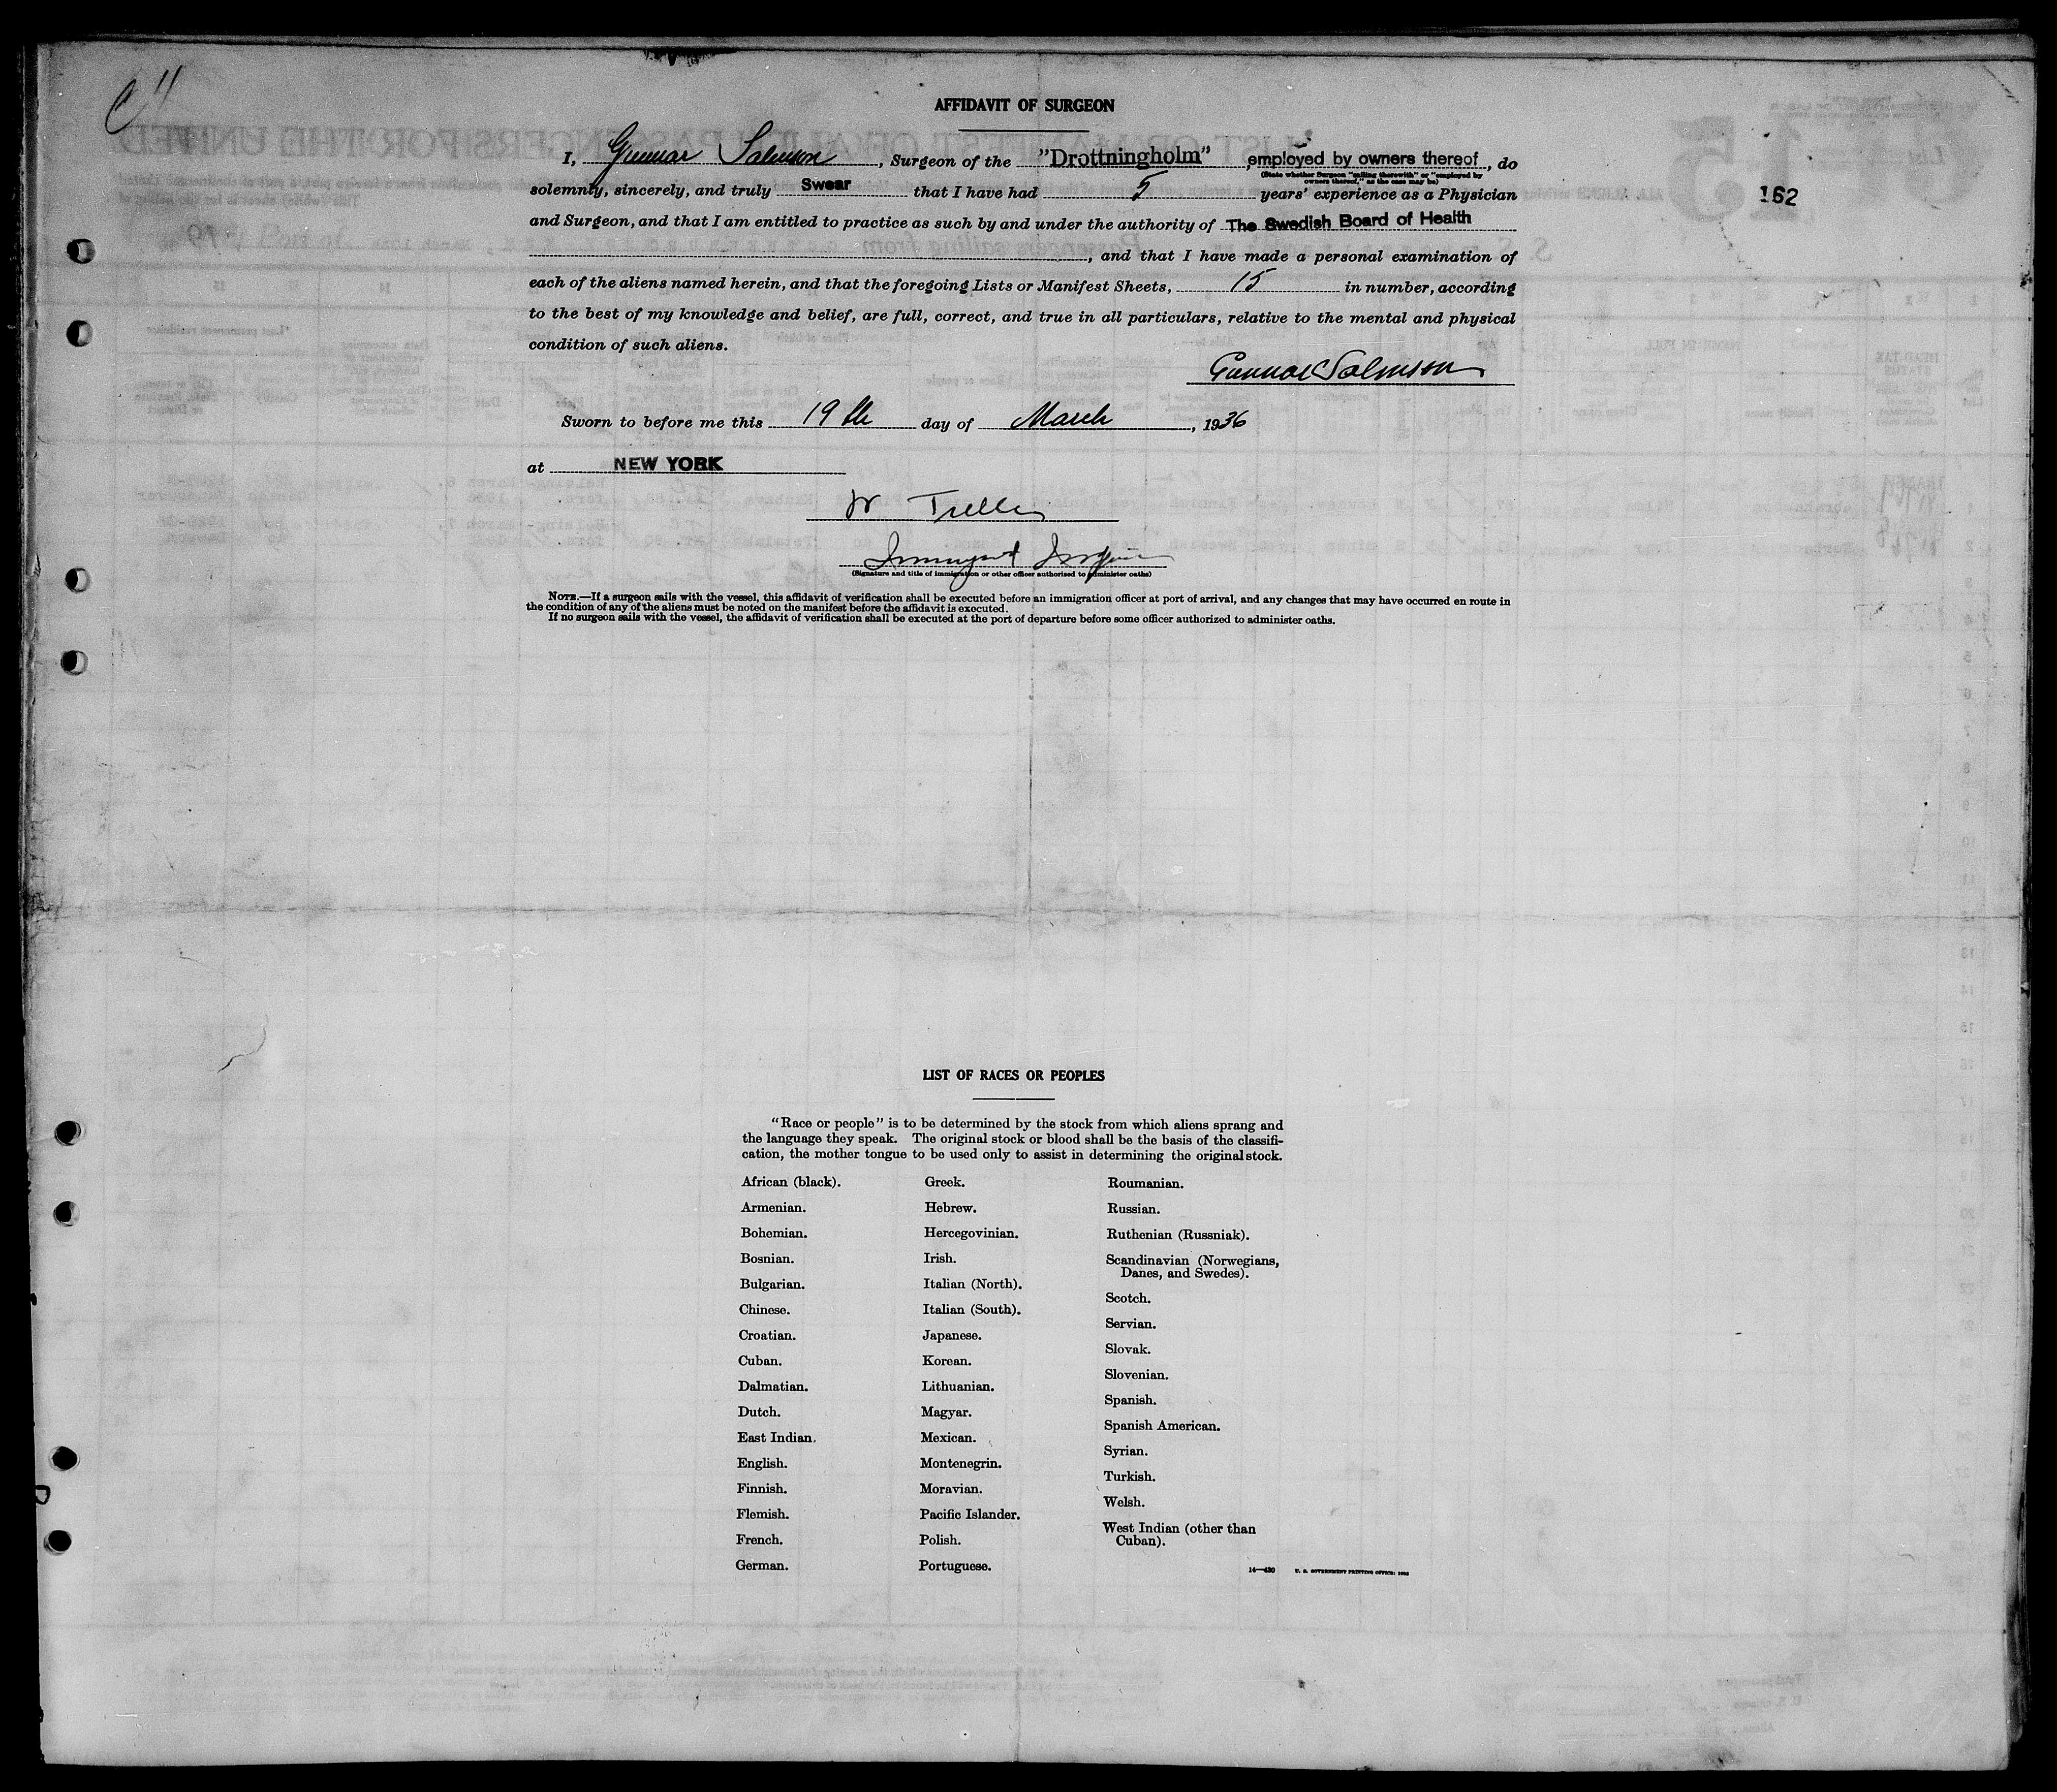 C 4
AFFIDAVIT OF SURGEON
I, Gunnar Salmson, Surgeon of the "Drottningholm", employed by owners thereof, do
(State whether Surgeon "sailing therewith" or "employed by
owners thereof," as the case may be)
162
solemnly, sincerely, and truly Swear that I have had 5 years' experience as a Physician
and Surgeon, and that I am entitled to practice as such by and under the authority of The Swedish Board of Health
, and that I have made a personal examination of
each of the aliens named herein, and that the foregoing Lists or Manifest Sheets, 15 in number, according
to the best of my knowledge and belief, are full, correct, and true in all particulars, relative to the mental and physical
condition of such aliens.
Gunnar Salmson
Sworn to before me this 19th day of March, 1936
at NEW YORK
W
Immigrant Inspector
(Signature and title of immigration or other officer authorized to administer oaths)
NOTE.—If a surgeon sails with the vessel, this affidavit of verification shall be executed before an immigration officer at port of arrival, and any changes that may have occurred en route in
the condition of any of the aliens must be noted on the manifest before the affidavit is executed.
If no surgeon sails with the vessel, the affidavit of verification shall be executed at the port of departure before some officer authorized to administer oaths.
LIST OF RACES OR PEOPLES
"Race or people" is to be determined by the stock from which aliens sprang and
the language they speak. The original stock or blood shall be the basis of the classifi-
cation, the mother tongue to be used only to assist in determining the original stock.
African (black).
Armenian.
Bohemian.
Bosnian.
Bulgarian.
Chinese.
Croatian.
Cuban.
Dalmatian.
Dutch.
East Indian.
English.
Finnish.
Flemish.
French.
German.
Greek.
Hebrew.
Hercegovinian.
Irish.
Italian (North).
Italian (South).
Japanese.
Korean.
Lithuanian.
Magyar.
Mexican.
Montenegrin.
Moravian.
Pacific Islander.
Polish.
Portuguese.
Roumanian.
Russian.
Ruthenian (Russniak).
Scandinavian (Norwegians,
Danes, and Swedes).
Scotch.
Servian.
Slovak.
Slovenian.
Spanish.
Spanish American.
Syrian.
Turkish.
Welsh.
West Indian (other than
Cuban).
14—430 U. S. GOVERNMENT PRINTING OFFICE: